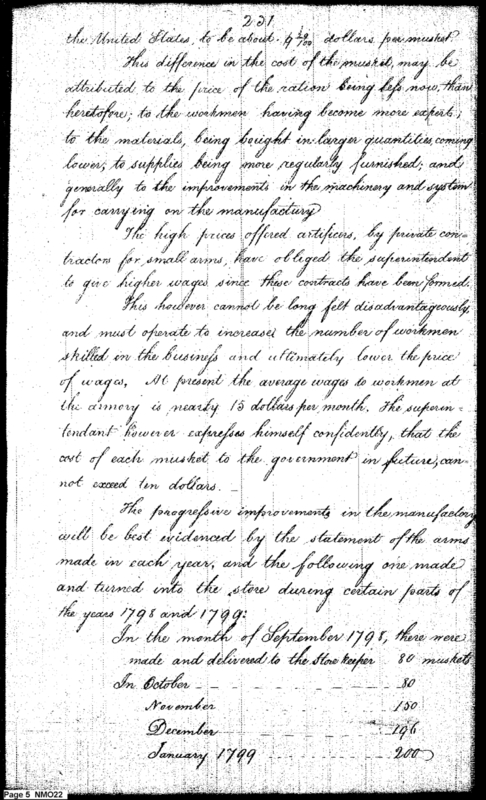 231
the United States, to be about 9 10/100 dollars per musket.
This difference in the cost of the musket, may be
attributed to the price of the ration being less now, than
heretofore; to the workmen having become more expert;
to the materials, being bought in larger quantities, coming
lower; to supplies being more regularly furnished; and
generally to the improvements in the machinery and system
for carrying on the manufactury
The high prices offered artificers, by private con-
tractors for small arms, have obliged the superintendent
to give higher wages since these contracts have been formed.
This however cannot be long felt disadvantageously,
and must operate to increase the number of workmen
skilled in the business and ultimately lower the price
of wages. At present the average wages to workmen at
the armory is nearly 15 dollars per month. The superin-
tendant however expresses himself confidently, that the
cost of each musket to the government in future, can-
not exceed ten dollars.
The progressive improvements in the manufactory
will be best evidenced by the statement of the arms
made in each year, and the following one made
and turned into the store during certain parts of
the years 1798 and 1799:
In the month of September 1798, there were
made and delivered to the Store keeper 80 muskets
In October 80
November 150
December 196
January 1799 200
Page 5 NMO22